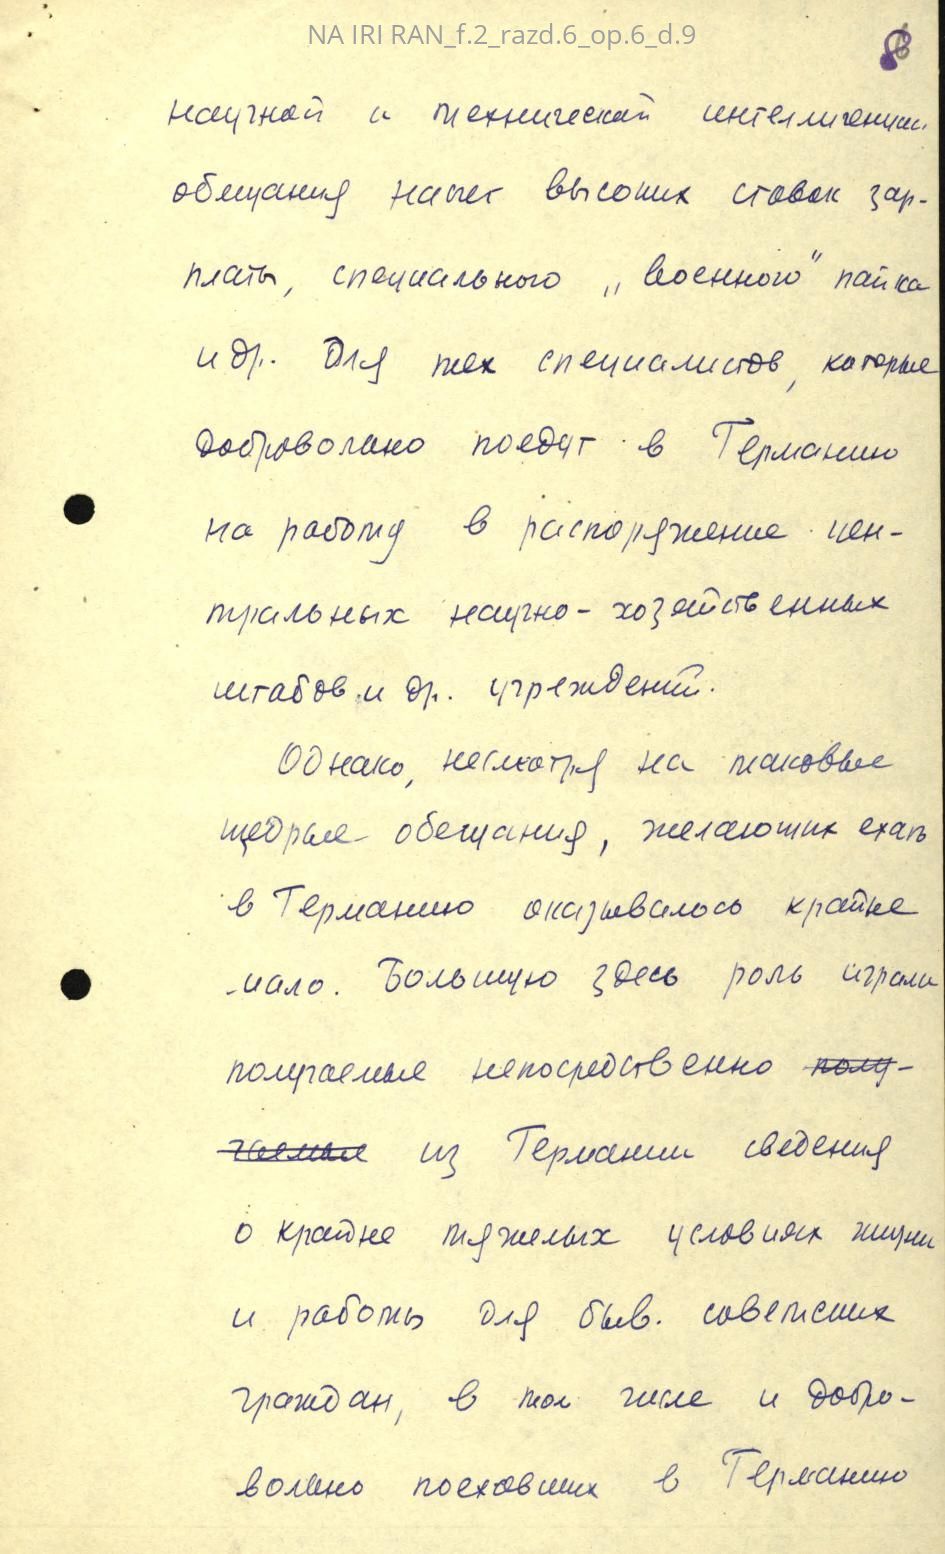 NA IRI RAN_f.2_razd.6_op.6_d.9
8
научной и технической интеллигенции
обещания насчет высоких ставок зар-
платы, специального „военного" пайка
и др. для тех специалистов, которые
добровольно поедут в Германию
на работу в распоряжение цен-
тральных научно-хозяйственных
штабов и др. учреждений.
Однако, несмотря на таковые
щедрые обещания, желающих ехать
в Германию оказывалось крайне
мало. Большую здесь роль играли
получаемые непосредственно полу-
чаемые из Германии сведения
о крайне тяжелых условиях жизни
и работы для быв. советских
граждан, в том числе и добро-
вольно поехавших в Германию